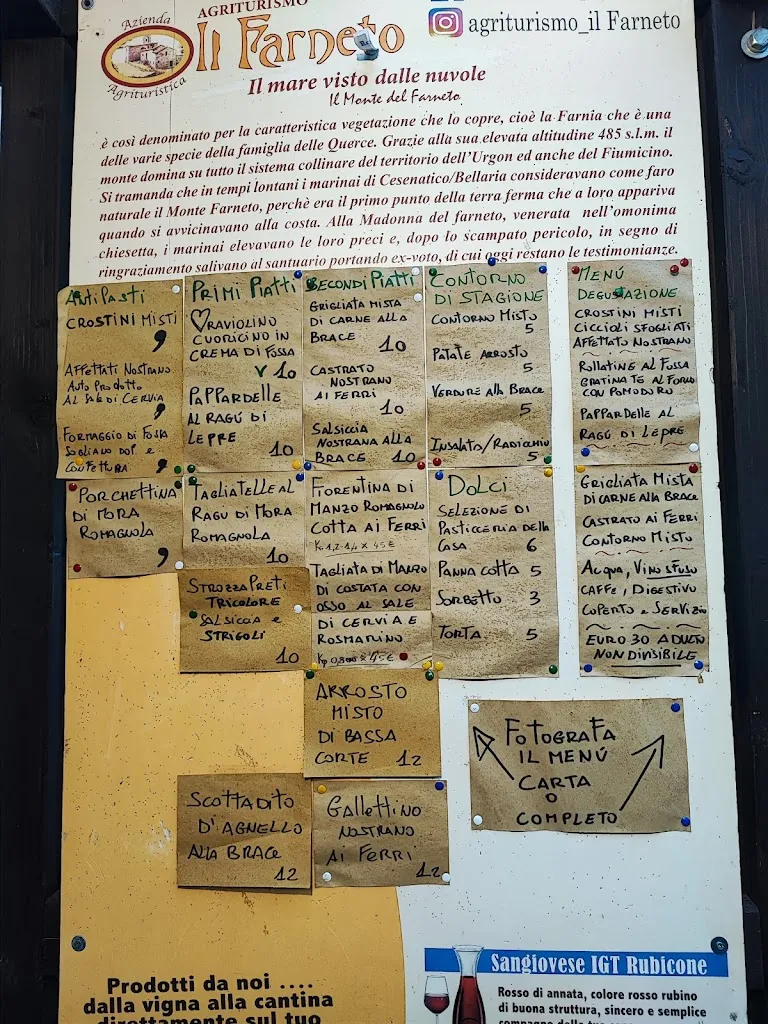 Azienda
Agrituristica
AGRITURISMO
Il Farneto
agriturismo_il Farneto
Il mare visto dalle nuvole
Il Monte del Farneto
è così denominato per la caratteristica vegetazione che lo copre, cioè la Farnia che è una
delle varie specie della famiglia delle Querce. Grazie alla sua elevata altitudine 485 s.l.m. il
monte domina su tutto il sistema collinare del territorio dell'Urgon ed anche del Fiumicino.
Si tramanda che in tempi lontani i marinai di Cesenatico/Bellaria consideravano come faro
naturale il Monte Farneto, perchè era il primo punto della terra ferma che a loro appariva
quando si avvicinavano alla costa. Alla Madonna del farneto, venerata nell'omonima
chiesetta, i marinai elevavano le loro preci e, dopo lo scampato pericolo, in segno di
ringraziamento salivano al santuario portando ex-voto, di cui oggi restano le testimonianze.
ANTIPASTI
CROSTINI MISTI
9
AFFETTATI NOSTRANO
AUTO PRODOTTO
AL SALE DI CERVIA
9
FORMAGGIO DI FOSSA
SOGLIANO DOP E
CONFETTURA 9
PORCHETTINA
DI MORA
ROMAGNOLA
9
PRIMI PIATTI
RAVIOLINO
CUORICINO IN
CREMA DI FOSSA
V 10
PAPPARDELLE
AL RAGÚ DI
LEPRE
10
TAGLIATELLE AL
RAGU DI MORA
ROMAGNOLA
10
STROZZAPRETI
TRICOLORE
SALSICCIA E
STRIGOLI
10
SECONDI PIATTI
GRIGLIATA MISTA
DI CARNE ALLA
BRACE
10
CASTRATO
NOSTRANO
AI FERRI
10
SALSICCIA
NOSTRANA ALLA
BRACE 10
FIORENTINA DI
MANZO ROMAGNOLO
COTTA AI FERRI
Kg 1,2-1,4 x 45€
TAGLIATA DI MANZO
DI COSTATA CON
OSSO AL SALE
DI CERVIA E
ROSMARINO
Kg 0,800 x 45€
ARROSTO
MISTO
DI BASSA
CORTE 12
SCOTTADITO
D'AGNELLO
ALLA BRACE
12
GALLETTINO
NOSTRANO
AI FERRI
12
CONTORNO
DI STAGIONE
CONTORNO MISTO
5
PATATE ARROSTO
5
VERDURE ALLA BRACE
5
INSALATA/RADICCHIO
5
DOLCI
SELEZIONE DI
PASTICCERIA DELLA
CASA 6
PANNA COTTA 5
SORBETTO 3
TORTA 5
MENÚ
DEGUSTAZIONE
CROSTINI MISTI
CICCIOLI SFOGLIATI
AFFETTATO NOSTRANO
ROLLATINE AL FOSSA
GRATINATE AL FORNO
CON POMODORO
PAPPARDELLE AL
RAGÚ DI LEPRE
GRIGLIATA MISTA
DI CARNE ALLA BRACE
CASTRATO AI FERRI
CONTORNO MISTO
ACQUA, VINO SFUSO
CAFFE, DIGESTIVO
COPERTO E SERVIZIO
EURO 30 ADULTO
NON DIVISIBILE
FOTOGRAFA
IL MENÚ
CARTA
O
COMPLETO
Prodotti da noi ....
dalla vigna alla cantina
direttamente sul tuo
Sangiovese IGT Rubicone
Rosso di annata, colore rosso rubino
di buona struttura, sincero e semplice